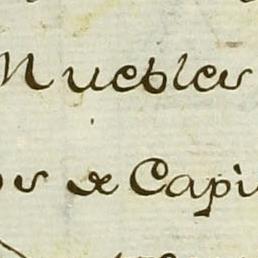 Muebles
de Capi